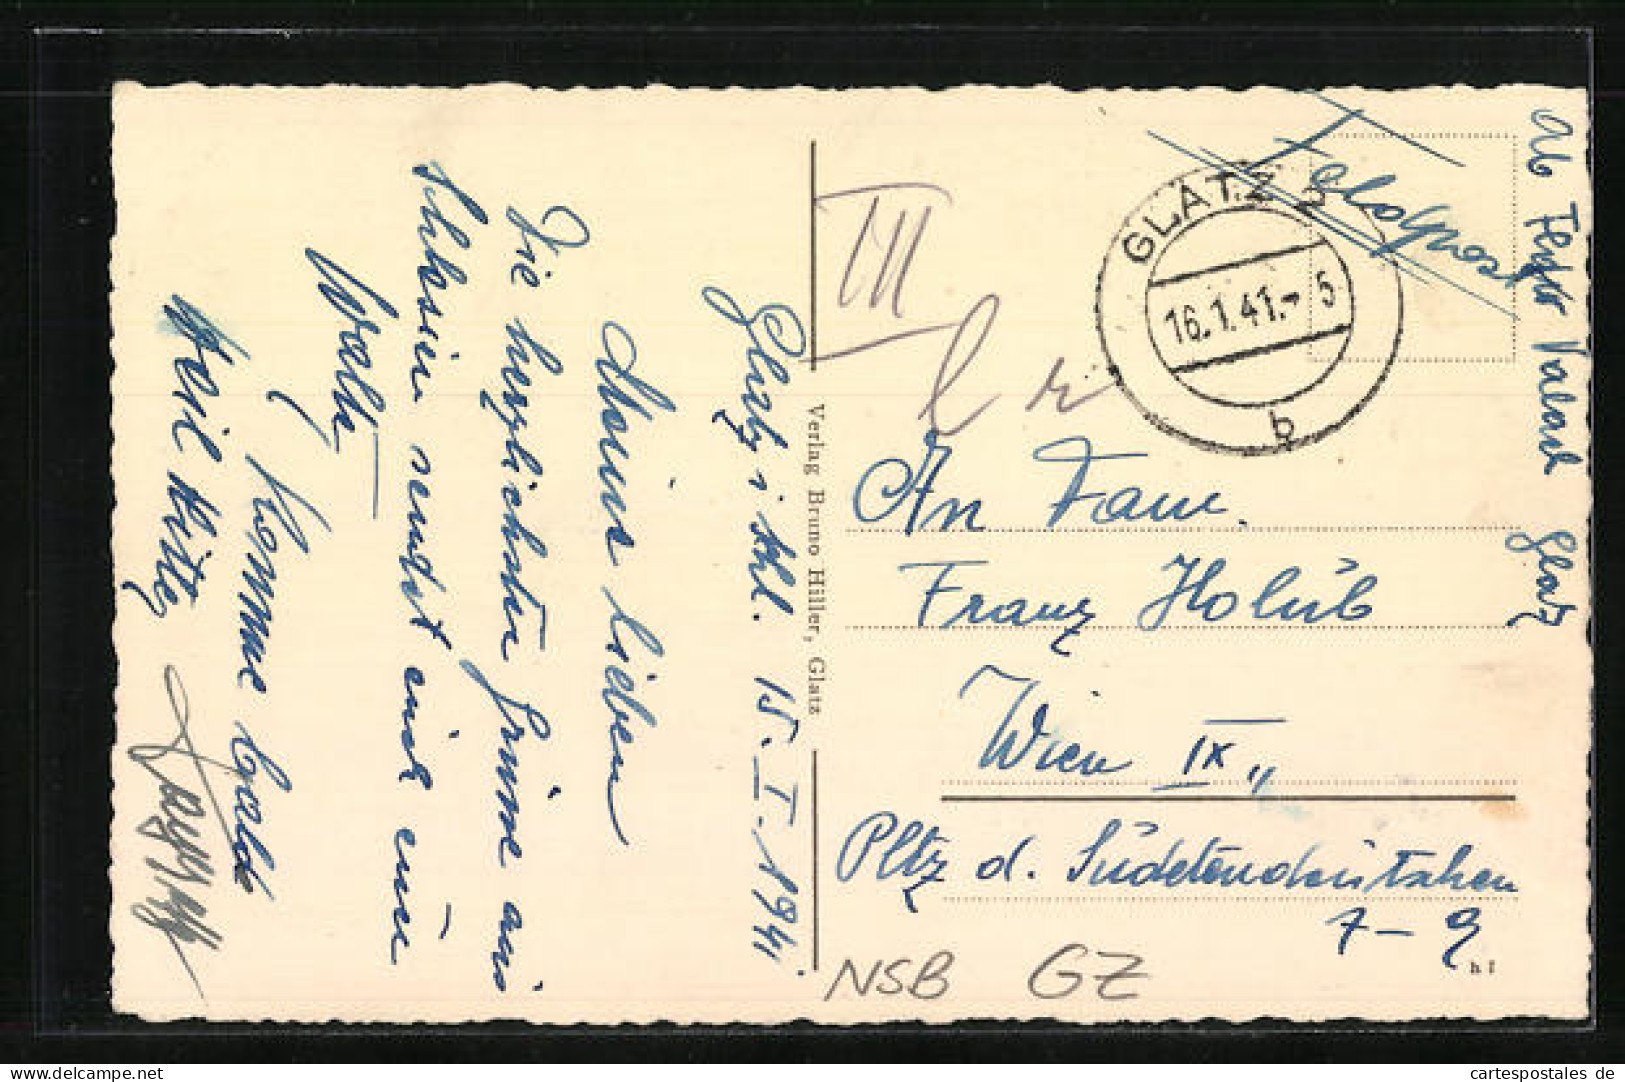 Glatz i. Schl. 15.I.1941.
Meine Lieben
Die herzlichsten Grüsse aus
Schlesien sendet euch euer
Walli
Komme balde
Heil Hitler
Verlag Bruno Hiller, Glatz
III
GLATZ 2
16.1.41.- 5
b
Feldpost
Glatz
An Fam.
Franz Holub
Wien IX,,
Pltz d. Sudetendeutschen
7-9
h I
NSB GZ
www.cartespostales.de